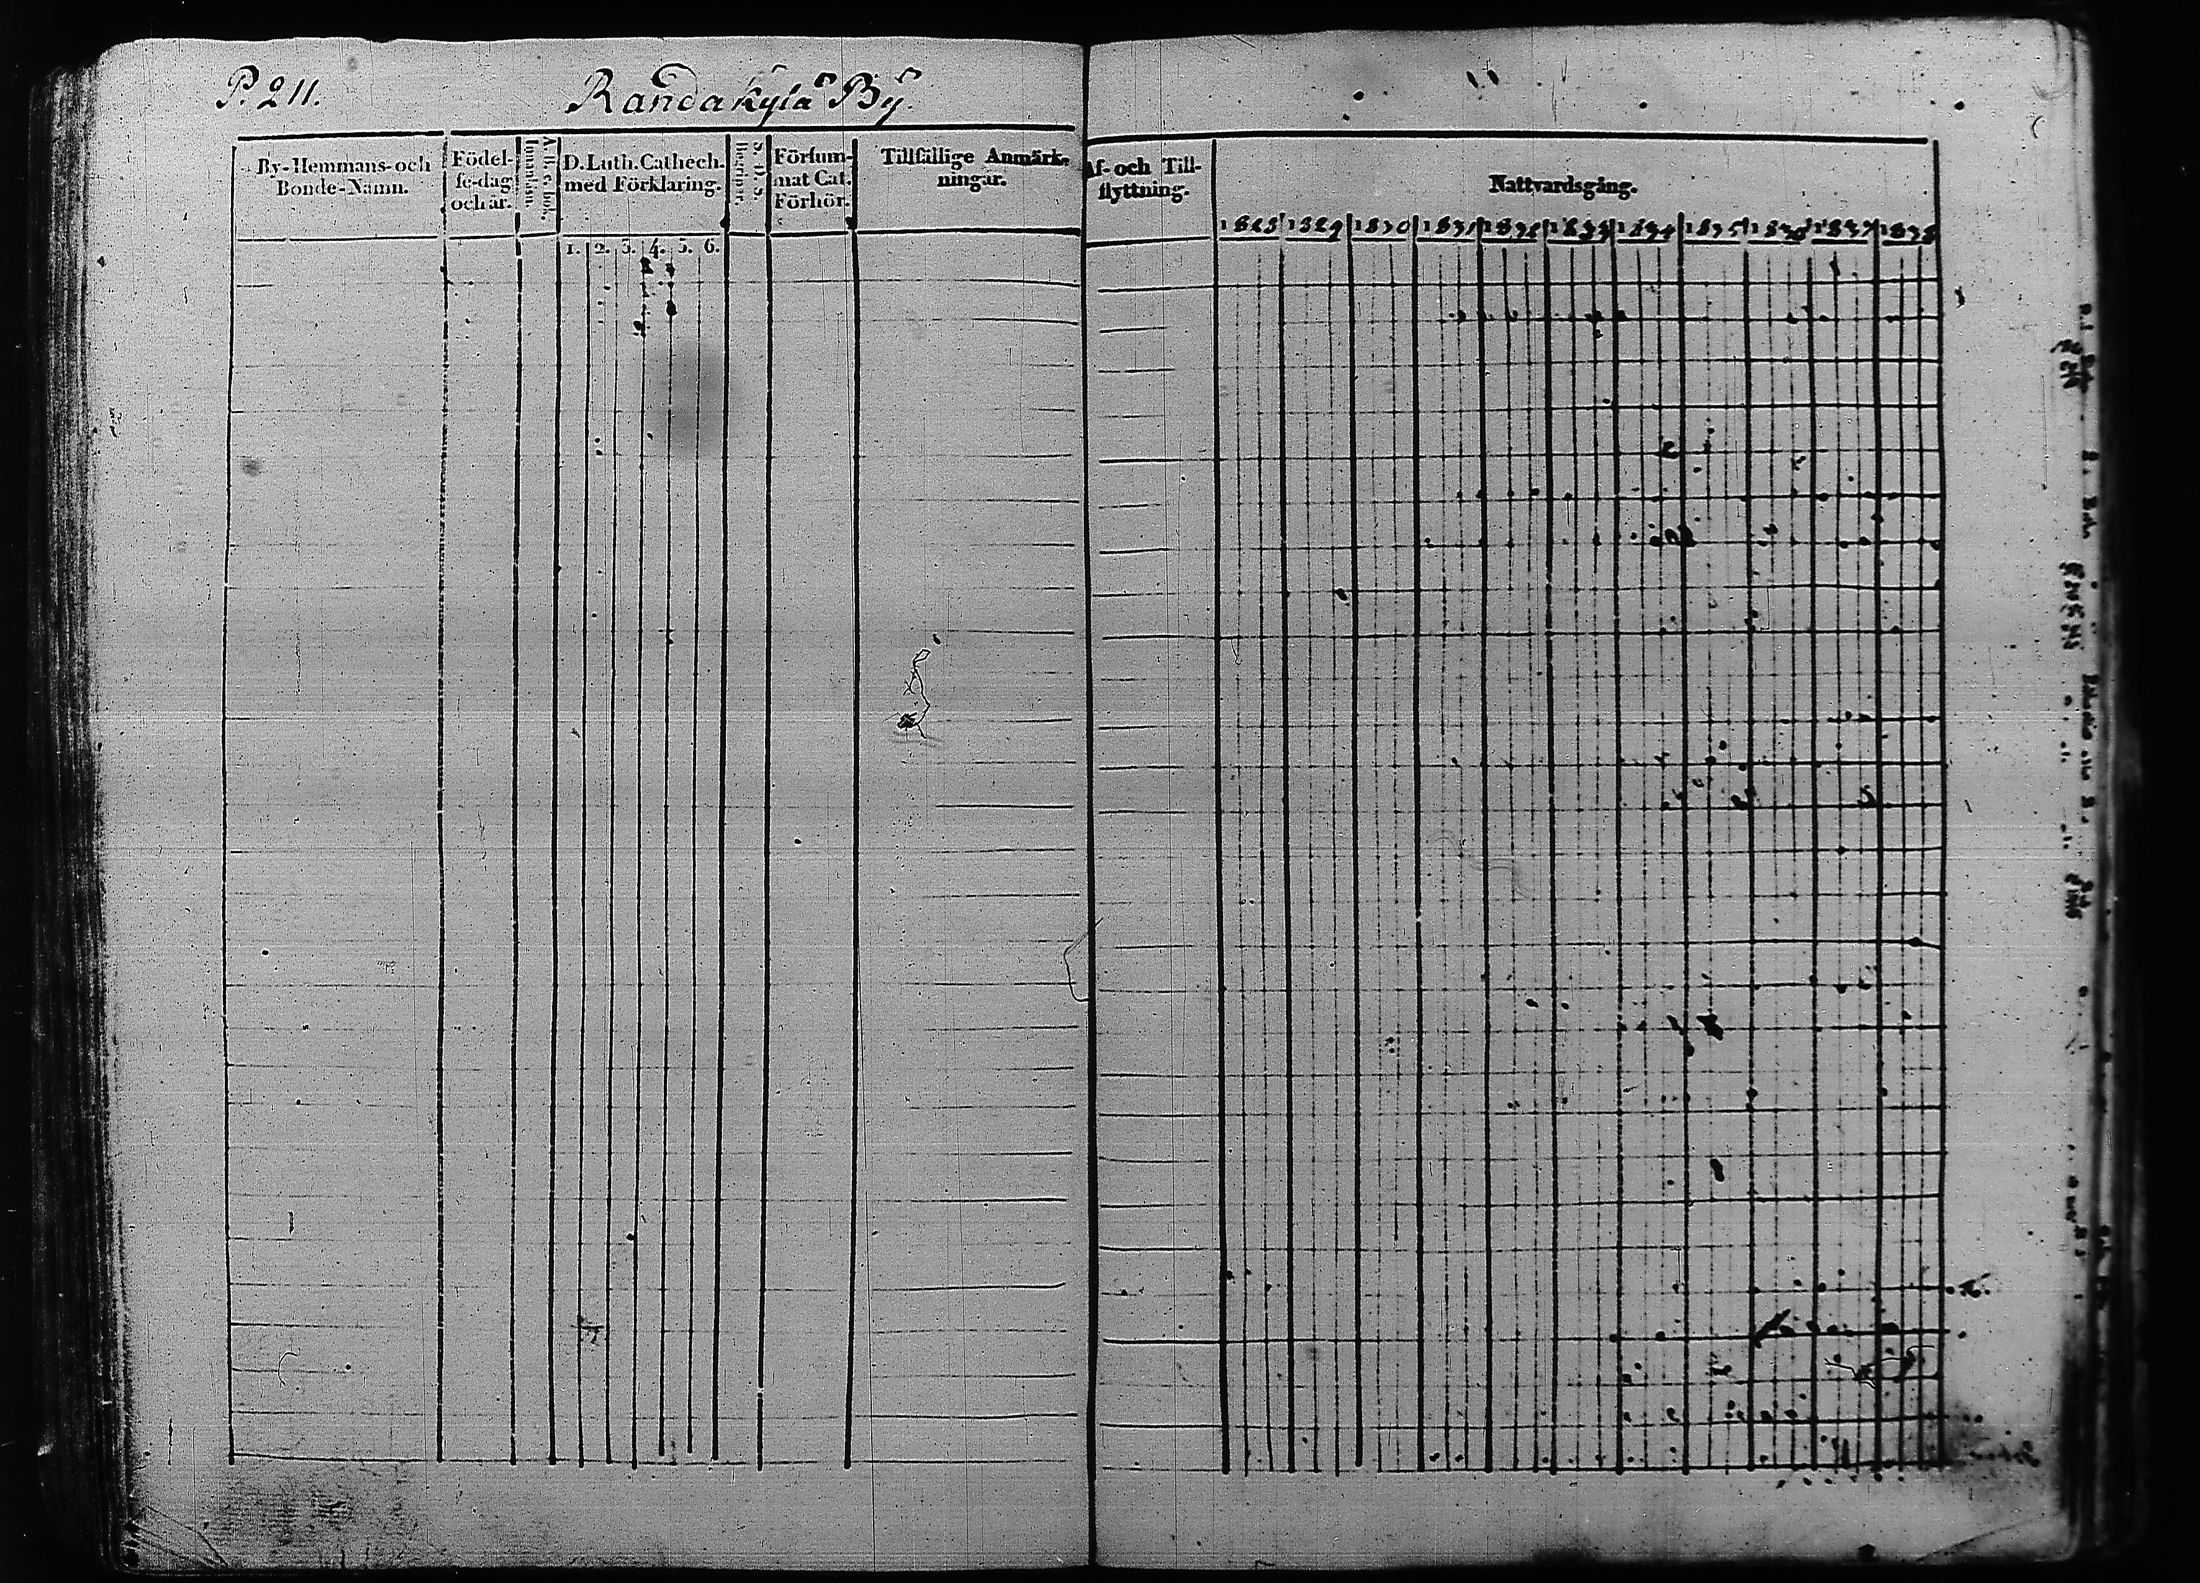 P. 211.
Randakylä By
By-Hemmans- och
Bonde-Namn.
Födel-
se-dag
och år.
A. B. c. bok.
Innanläsn.
D. Luth. Cathech.
med Förklaring.
1. 2. 3. 4. 5. 6.
Försum-
mat Cat.
Förhör.
Tillfällige Anmärk-
ningar.
Af- och Till-
flyttning.
Nattvardsgång.
1828 1829 1830 1831 1832 1833 1834 1835 1836 1837 1838